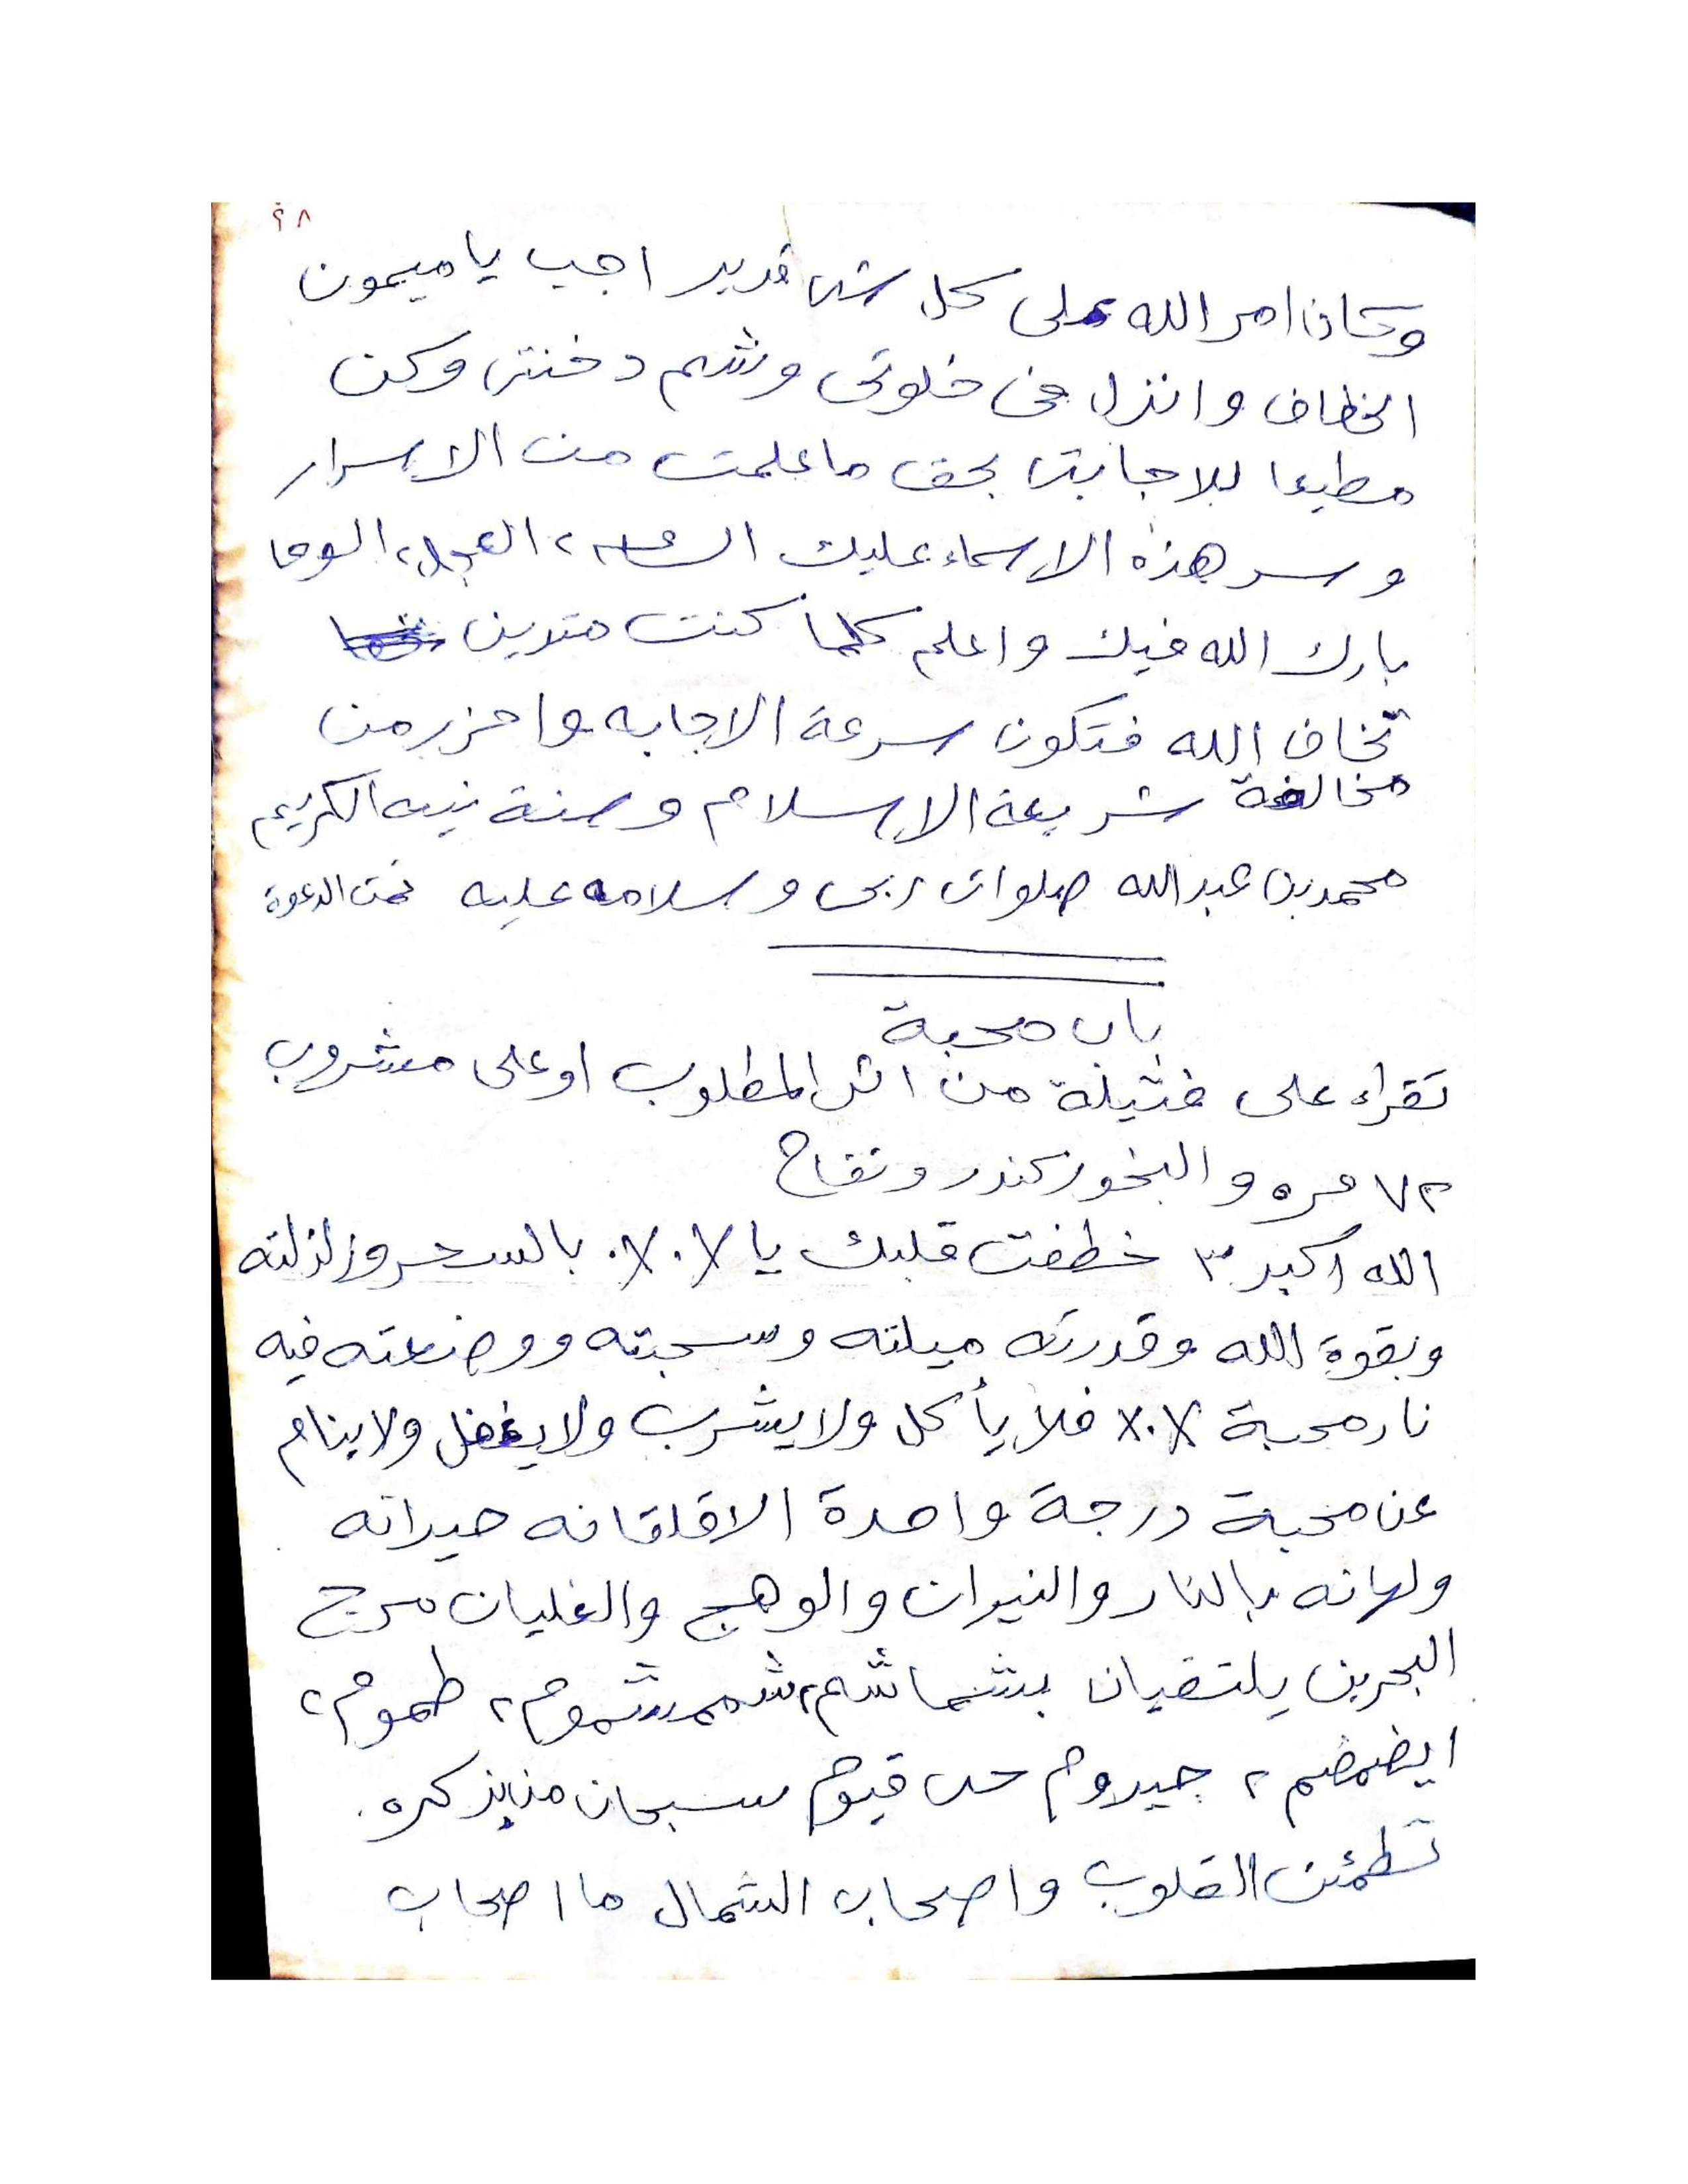 ٩٨
وكان امر الله على كل شى قدير اجب يا ميمون
الخطاف وانزل فى خلوتى وشم دخنتى وكن
مطيعا للاجابتى بحق ما علمت من الاسرار
وسر هذه الاسماء عليك ٢ العجل ٢ الوحا
بارك الله فيك واعلم كلما كنت متدين
تخاف الله فتكون سرعة الاجابه واحزر من
مخالفة شريعة الاسلام وسنة نبيه الكريم
محمد بن عبد الله صلوات ربى وسلامه عليه تمت الدعوة
باب محبة
تقراء على فتيلة من اثر المطلوب او على مشروب
٧٢ مره والبخور كندر وتفاح
الله اكبر ٣ خطفت قلبك يا ٠/٠/ بالسحر وزلزلته
وبقوة الله وقدرته ميلته وسحبته ووضعته فيه
نار محبة ٠/٠/ فلا يأكل ولا يشرب ولا يغفل ولا ينام
عن محبة درجة واحدة الا قلقانه حيرانه
ولهانه بالنار والنيران والوهج والغليان مرج
البحرين يلتقيان بشماشم ٢ شممشموم ٢ طموم ٢
ايضمضم ٢ جيروم حى قيوم سبحان من بذكره
تطمئن القلوب واصحاب الشمال ما اصحاب